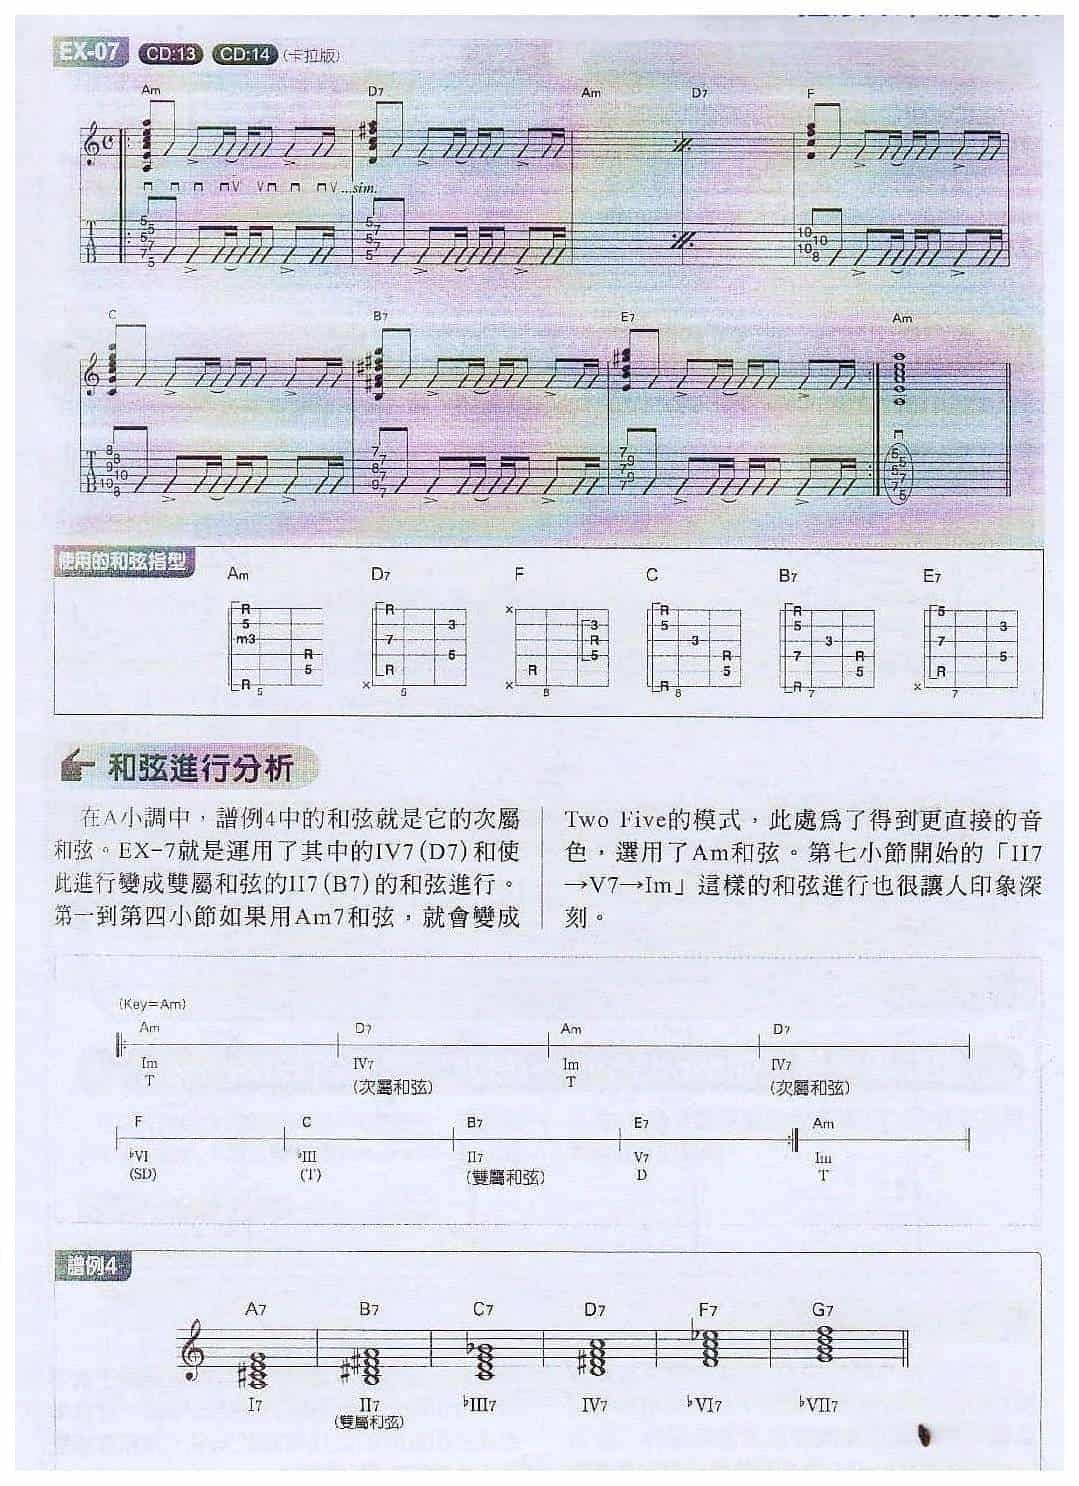 EX-07 CD:13 CD:14 (卡拉版)
Am D7 Am D7 F
...sim.
5 5 5 7 5
5 7 5 7 5
10 10 10 8
C B7 E7 Am
8 8 9 10 10 8
7 7 8 7 9 7
7 9 7 9 7
5 5 5 7 7 5
使用的和弦指型
Am D7 F C B7 E7
R R × 3 R R 5
5 3 R 5 5 3
m3 7 5 3 7 3 7
R 5 R R R 5
5 R R 5 5 R
R × × R R ×
5 5 8 8 7 7
和弦進行分析
在A小調中，譜例4中的和弦就是它的次屬
和弦。EX-7就是運用了其中的IV7(D7)和使
此進行變成雙屬和弦的II7(B7)的和弦進行。
第一到第四小節如果用Am7和弦，就會變成
Two Five的模式，此處爲了得到更直接的音
色，選用了Am和弦。第七小節開始的「II7
→V7→Im」這樣的和弦進行也很讓人印象深
刻。
(Key=Am)
Am D7 Am D7
Im IV7 Im IV7
T (次屬和弦) T (次屬和弦)
F C B7 E7 Am
♭VI ♭III II7 V7 Im
(SD) (T) (雙屬和弦) D T
譜例4
A7 B7 C7 D7 F7 G7
I7 II7 ♭III7 IV7 ♭VI7 ♭VII7
(雙屬和弦)